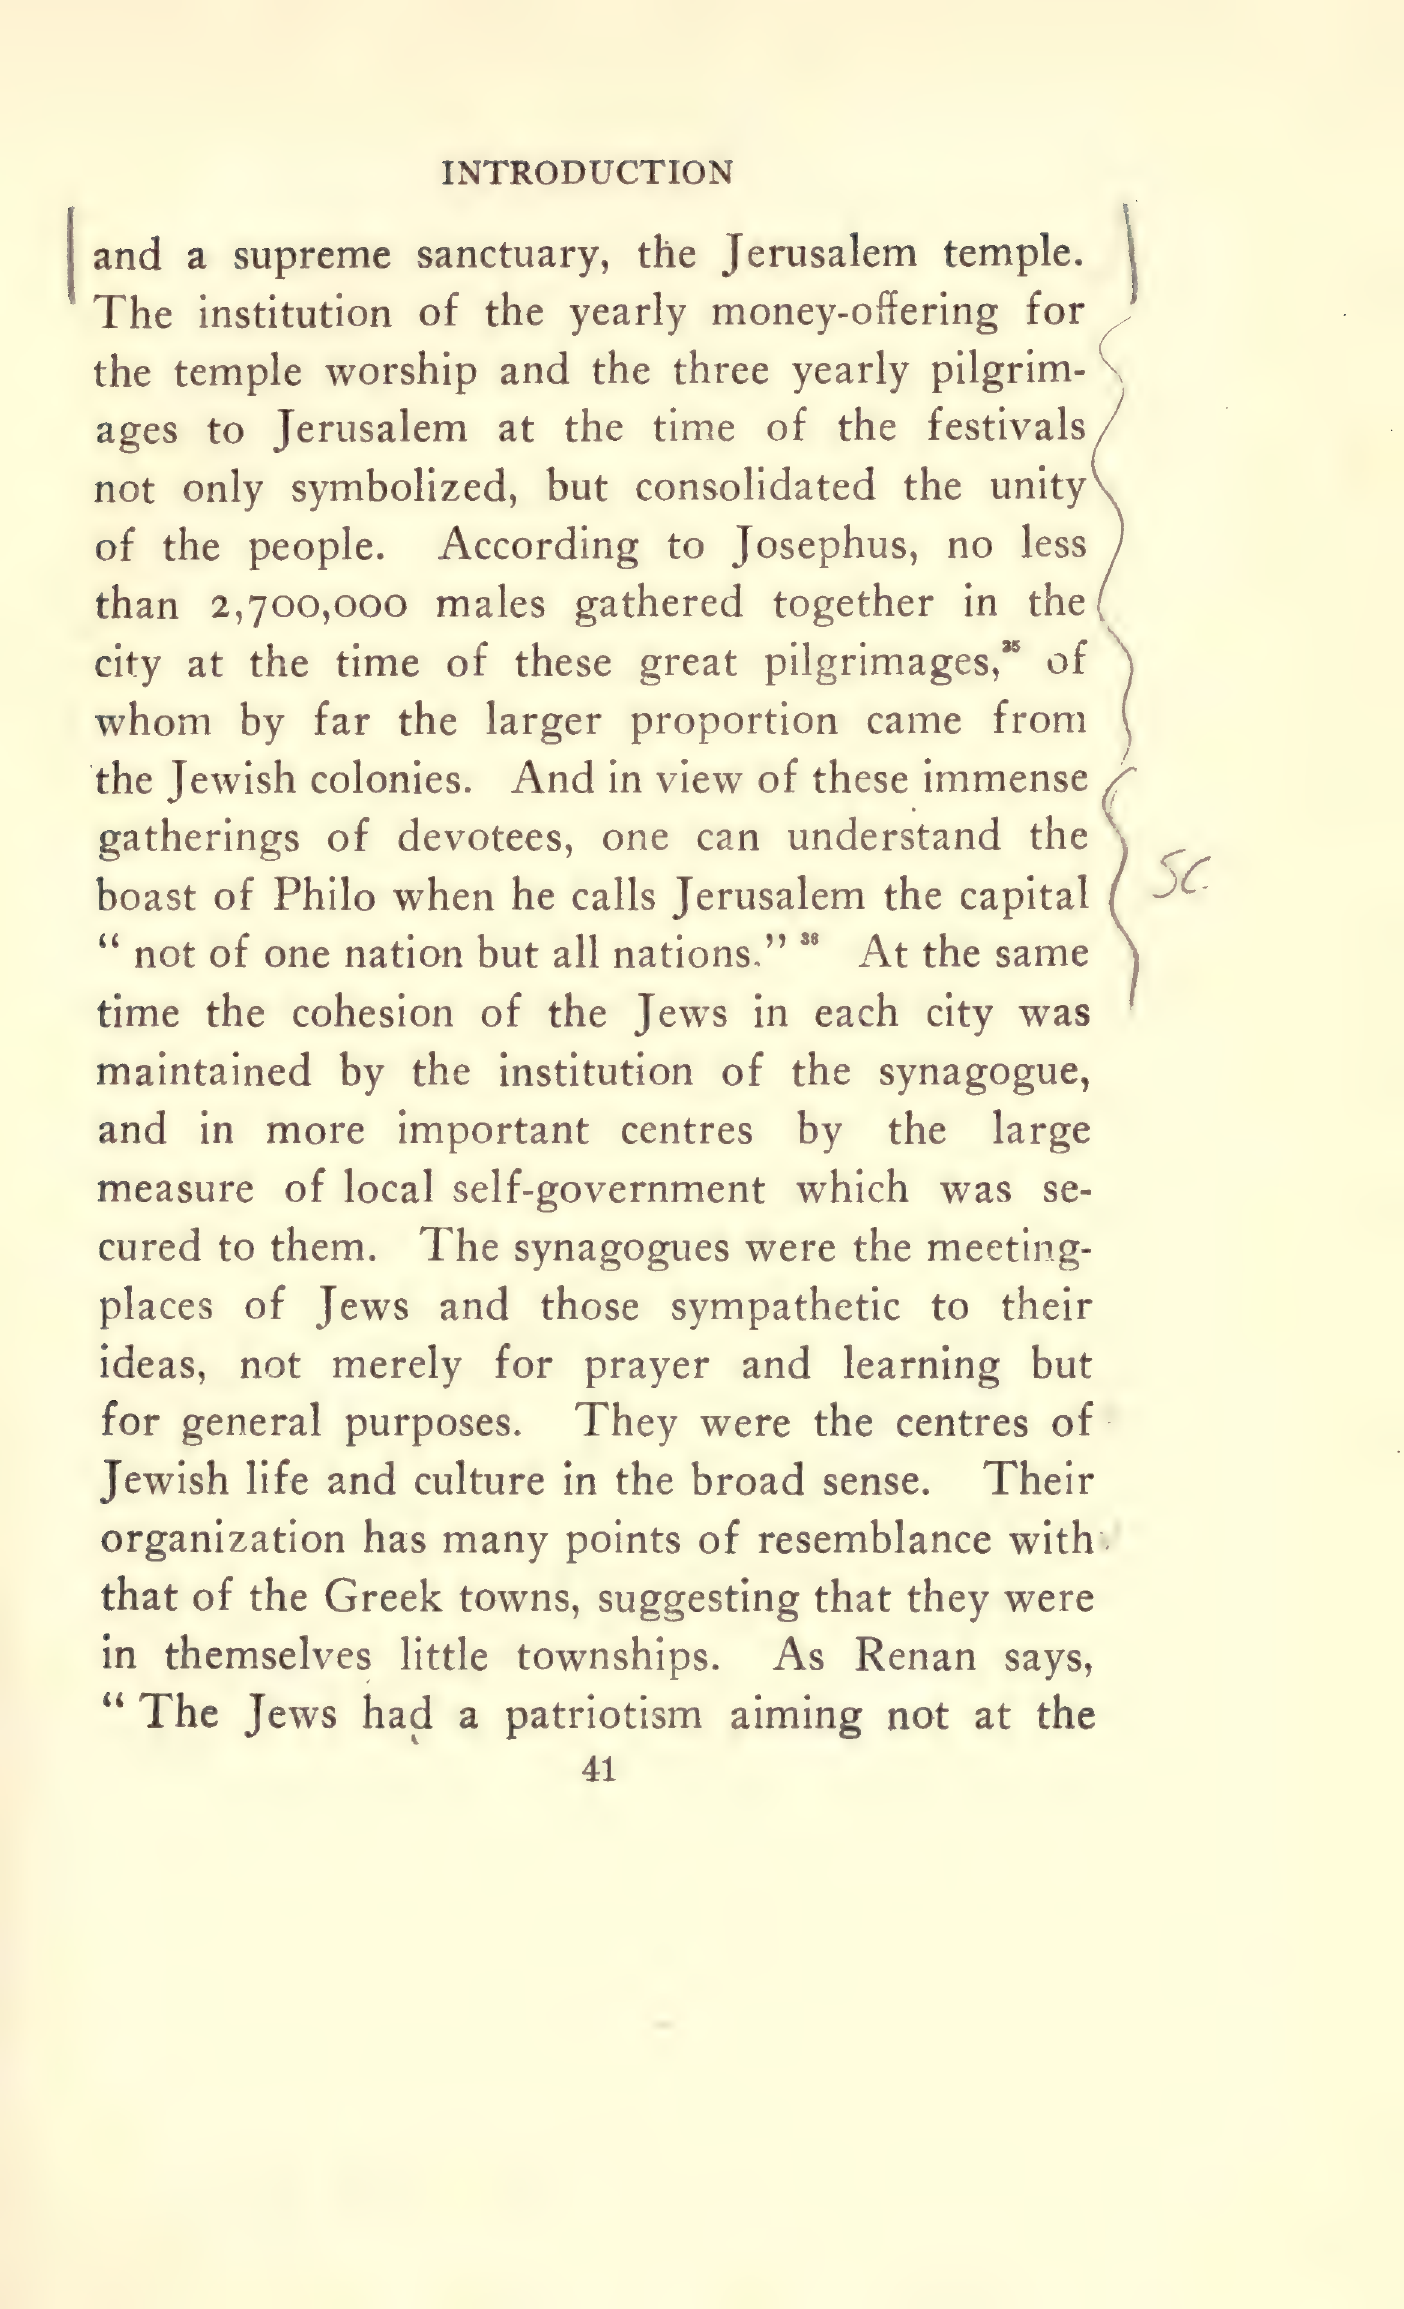 INTRODUCTION
and a supreme sanctuary, the Jerusalem temple.
The institution of the yearly money-offering for
the temple worship and the three yearly pilgrim-
ages to Jerusalem at the time of the festivals
not only symbolized, but consolidated the unity
of the people. According to Josephus, no less
than 2,700,000 males gathered together in the
city at the time of these great pilgrimages,³⁵ of
whom by far the larger proportion came from
the Jewish colonies. And in view of these immense
gatherings of devotees, one can understand the
boast of Philo when he calls Jerusalem the capital
SC.
“ not of one nation but all nations.” ³⁶ At the same
time the cohesion of the Jews in each city was
maintained by the institution of the synagogue,
and in more important centres by the large
measure of local self-government which was se-
cured to them. The synagogues were the meeting-
places of Jews and those sympathetic to their
ideas, not merely for prayer and learning but
for general purposes. They were the centres of
Jewish life and culture in the broad sense. Their
organization has many points of resemblance with
that of the Greek towns, suggesting that they were
in themselves little townships. As Renan says,
“ The Jews had a patriotism aiming not at the
41